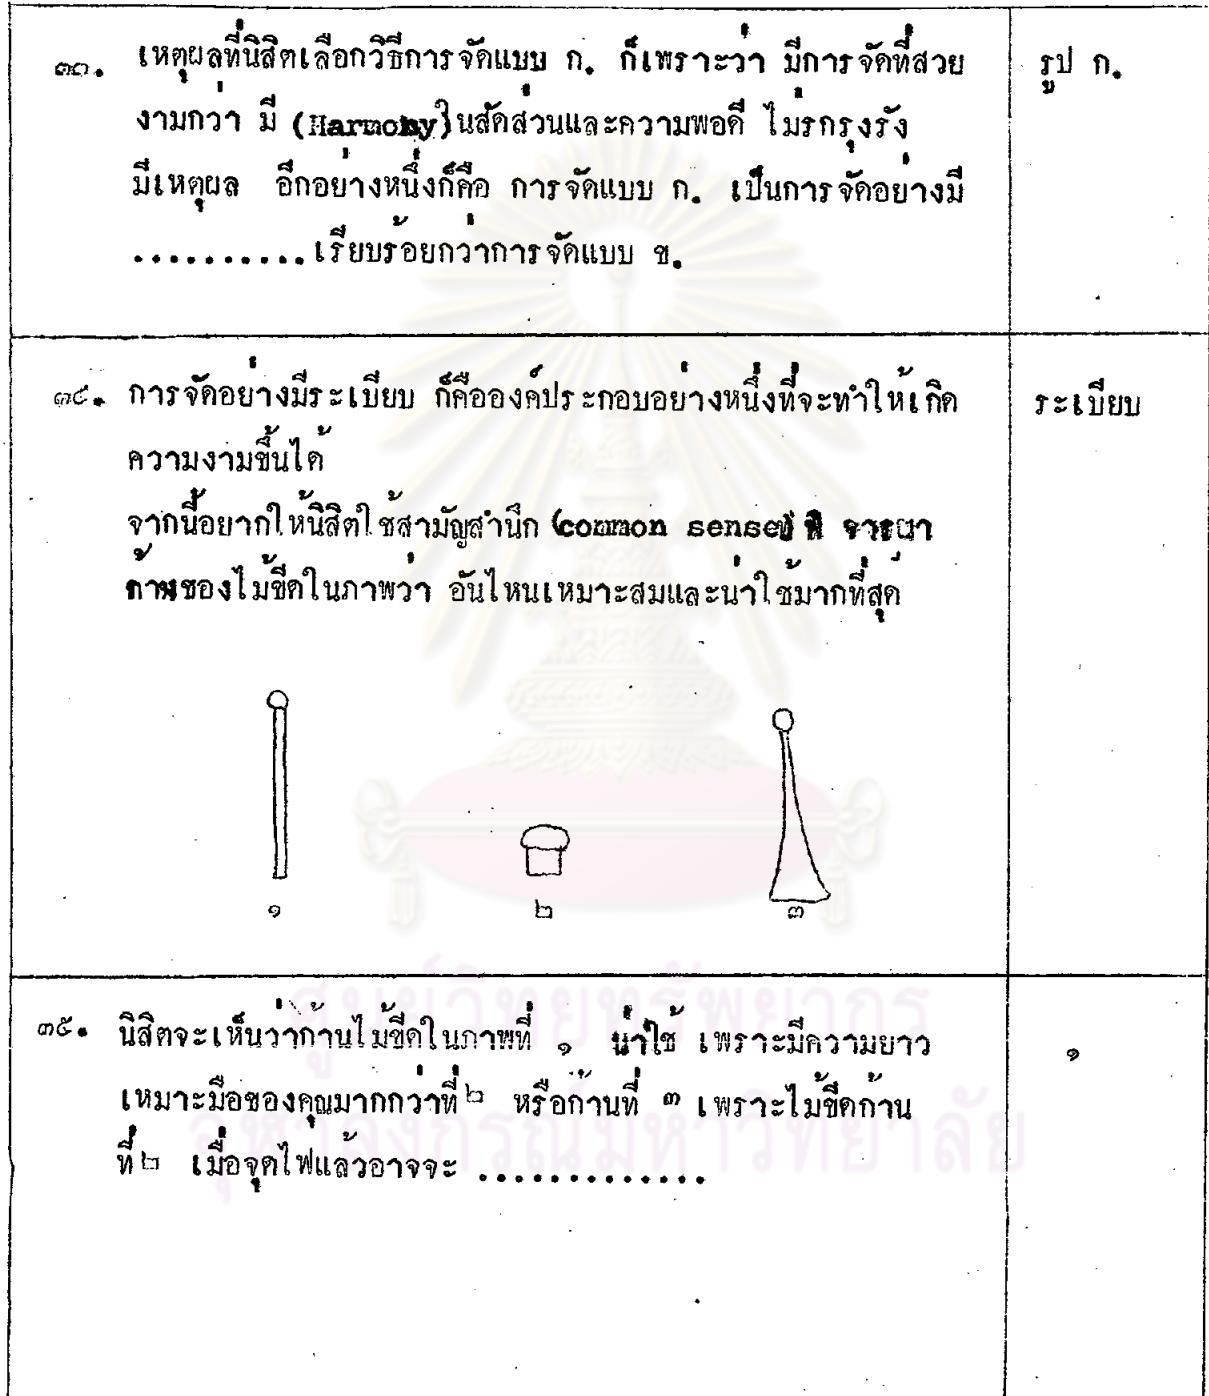 ๓๓. เหตุผลที่นิสิตเลือกวิธีการจัดแบบ ก. ก็เพราะว่า มีการจัดที่สวย
รูป ก.
งามกว่า มี (Harmony) ในสัดส่วนและความพอดี ไม่รกรุงรัง
มีเหตุผล อีกอย่างหนึ่งก็คือ การจัดแบบ ก. เป็นการจัดอย่างมี
.......... เรียบร้อยกว่าการจัดแบบ ข.
๓๔. การจัดอย่างมีระเบียบ ก็คือองค์ประกอบอย่างหนึ่งที่จะทำให้เกิด
ระเบียบ
ความงามขึ้นได้
จากนี้อยากให้นิสิตใช้สามัญสำนึก (common sense) พิจารณา
ก้านของไม้ขีดในภาพว่า อันไหนเหมาะสมและน่าใช้มากที่สุด
๑ ๒ ๓
๓๕. นิสิตจะเห็นว่าก้านไม้ขีดในภาพที่ ๑ น่าใช้ เพราะมีความยาว
๑
เหมาะมือของคุณมากกว่าที่ ๒ หรือก้านที่ ๓ เพราะไม้ขีดก้าน
ที่ ๒ เมื่อจุดไฟแล้วอาจจะ .............
ศูนย์วิทยทรัพยากร
จุฬาลงกรณ์มหาวิทยาลัย